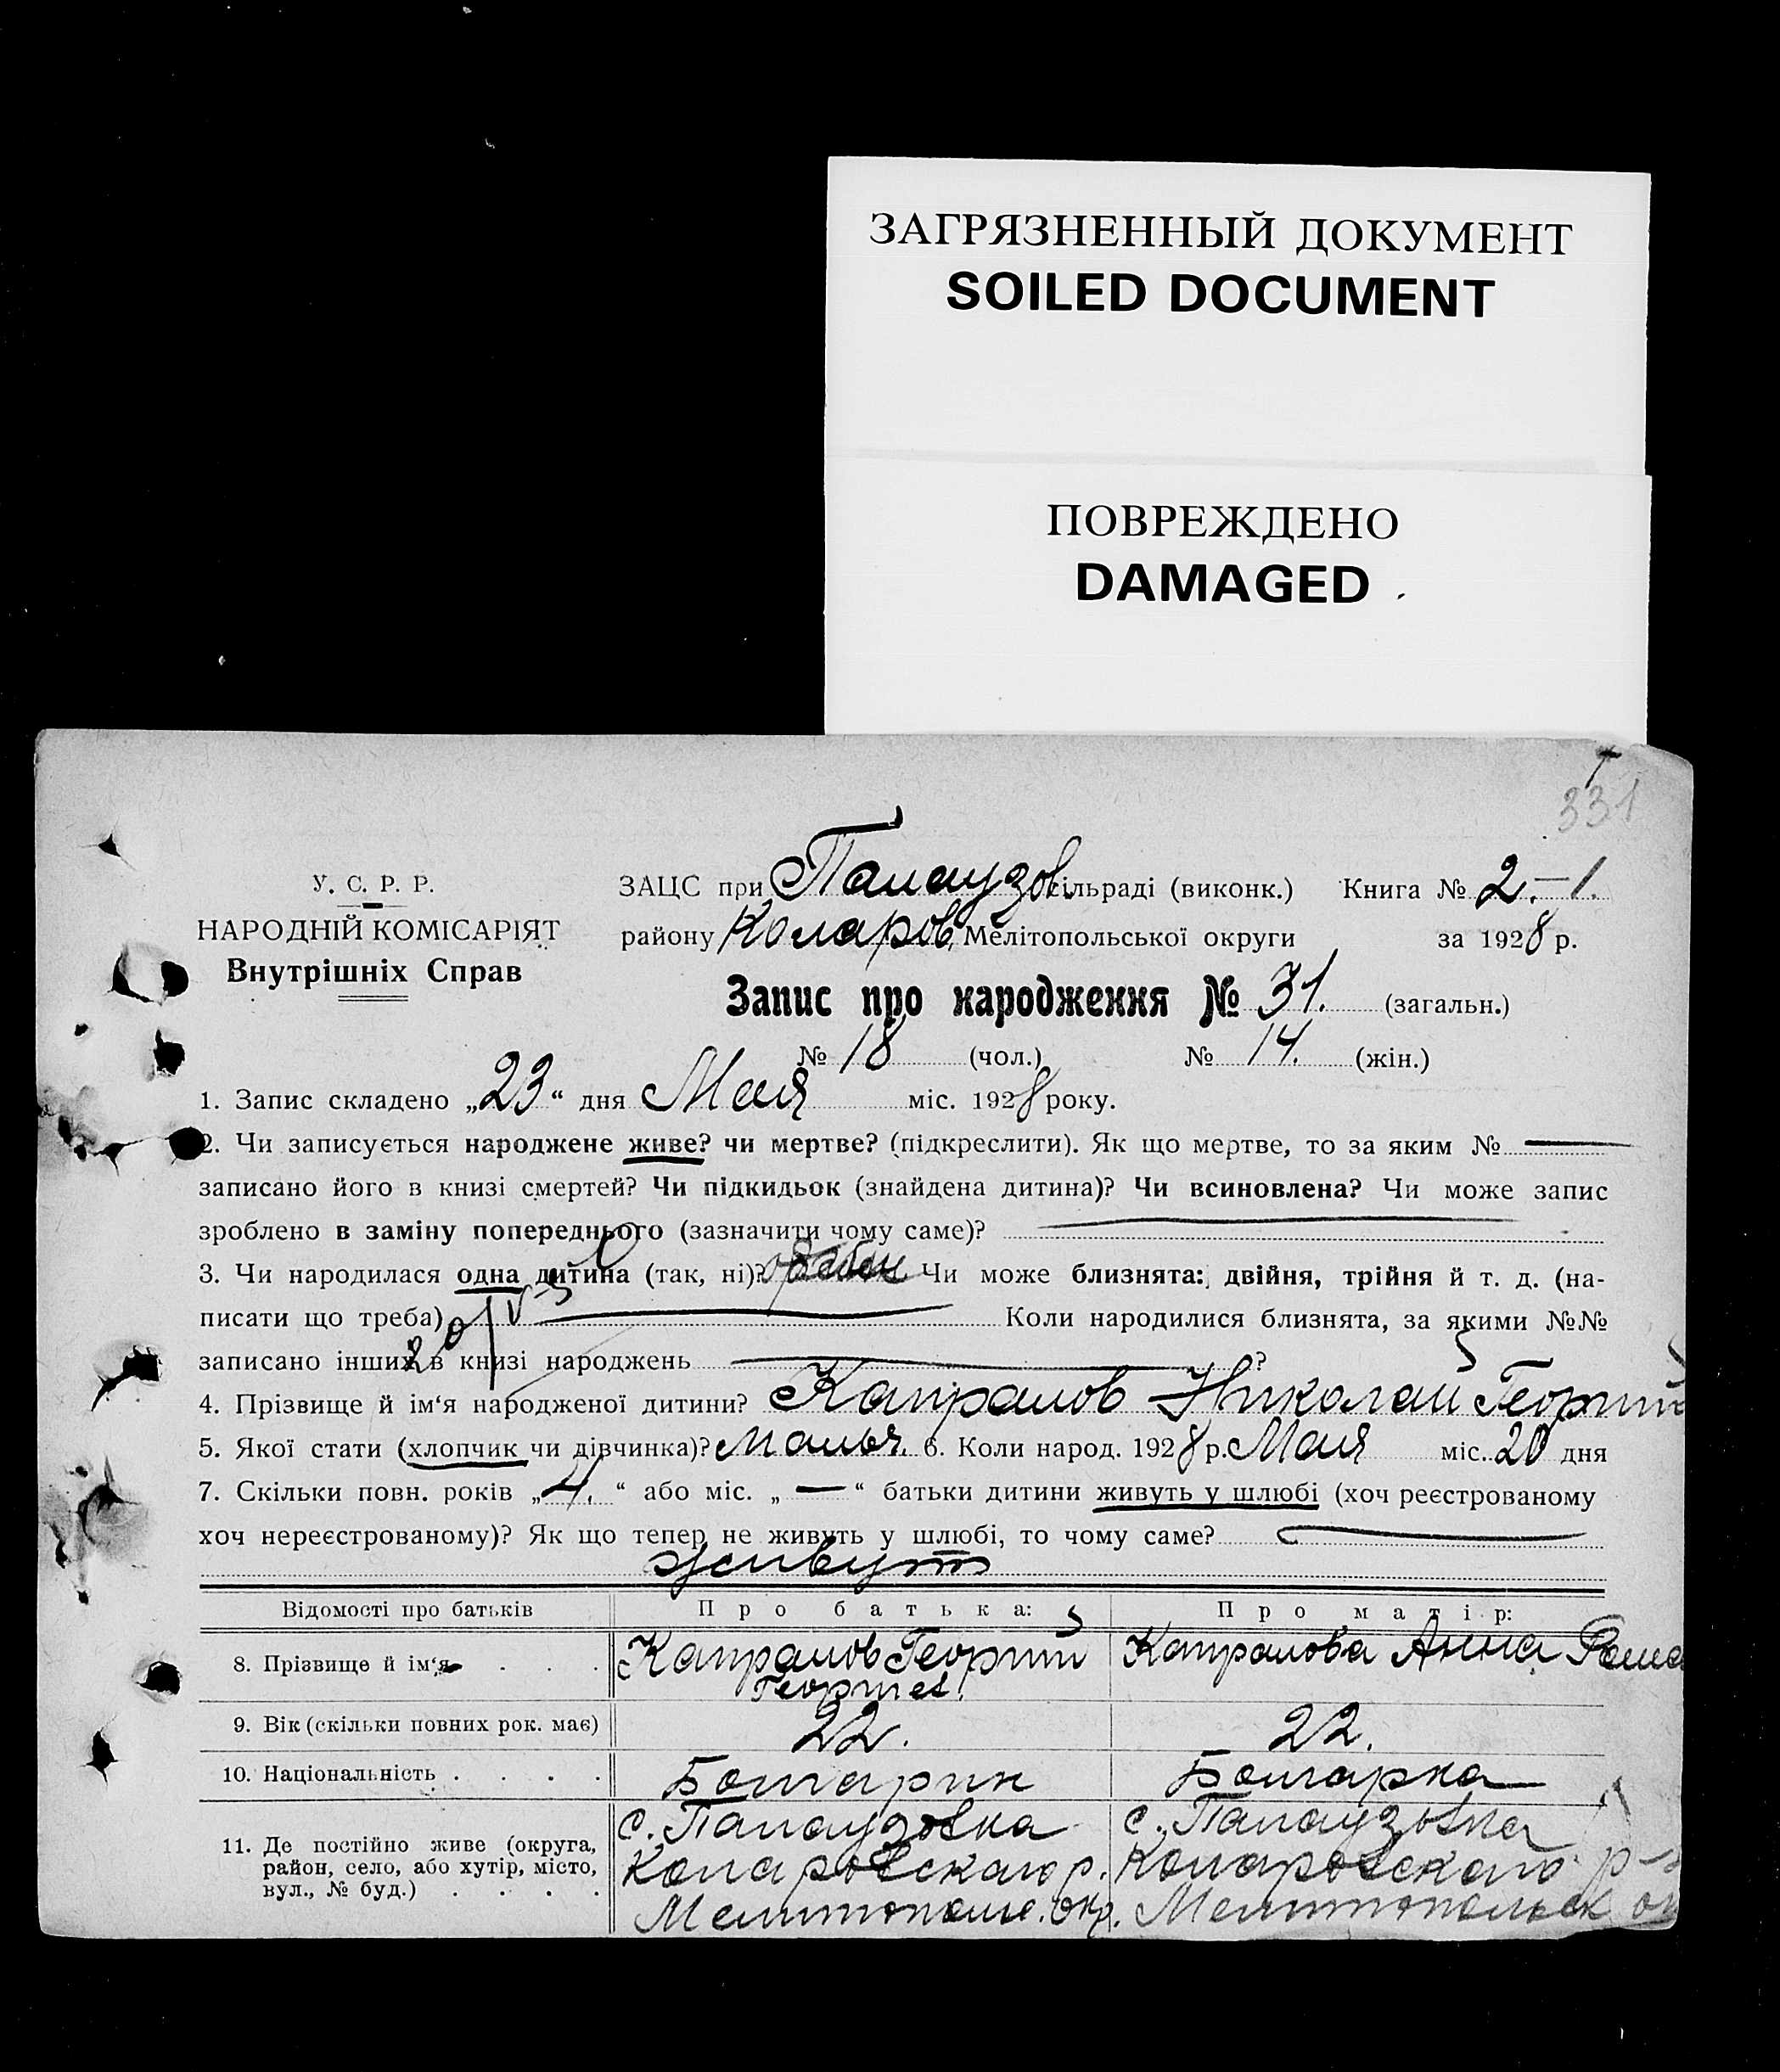 ЗАГРЯЗНЕННЫЙ ДОКУМЕНТ
SOILED DOCUMENT
ПОВРЕЖДЕНО
DAMAGED
331
У. С. Р. Р.
НАРОДНІЙ КОМІСАРІЯТ
Внутрішніх Справ
ЗАЦС при Палаузов. сільраді (виконк.) Книга № 2.-1.
району Коларов. Мелітопольської округи за 1928 р.
Запис про народження № 31. (загальн.)
№ 18 (чол.) № 14. (жін.)
1. Запис складено „23“ дня Мая міс. 1928 року.
2. Чи записується народжене живе? чи мертве? (підкреслити). Як що мертве, то за яким № —
записано його в книзі смертей? Чи підкидьок (знайдена дитина)? Чи всиновлена? Чи може запис
зроблено в заміну попереднього (зазначити чому саме)? —
3. Чи народилася одна дитина (так, ні)? Чи може близнята: двійня, трійня й т. д. (на-
писати що треба) — Коли народилися близнята, за якими №№
записано інших в книзі народжень — ?
4. Прізвище й ім‘я народженої дитини? Капралов Николай Георгий
5. Якої стати (хлопчик чи дівчинка)? Мальч. 6. Коли народ. 1928 р. Мая міс. 20 дня
7. Скільки повн. років „4.“ або міс. „—“ батьки дитини живуть у шлюбі (хоч реєстрованому
хоч нереєстрованому)? Як що тепер не живуть у шлюбі, то чому саме? —
живут
Відомості про батьків Про батька: Про матір:
8. Прізвище й ім‘я . . . . Капралов Георгий Георгиев. Капралова Анна
9. Вік (скільки повних рок. має) 22. 22.
10. Національність . . . . Болгарин Болгарка
11. Де постійно живе (округа, район, село, або хутір, місто, вул., № буд.) . . . . с. Палаузовка Коларовскаго р. Мелитополь. окр. с. Палаузовка Коларовскаго р-а Мелитопольск ок